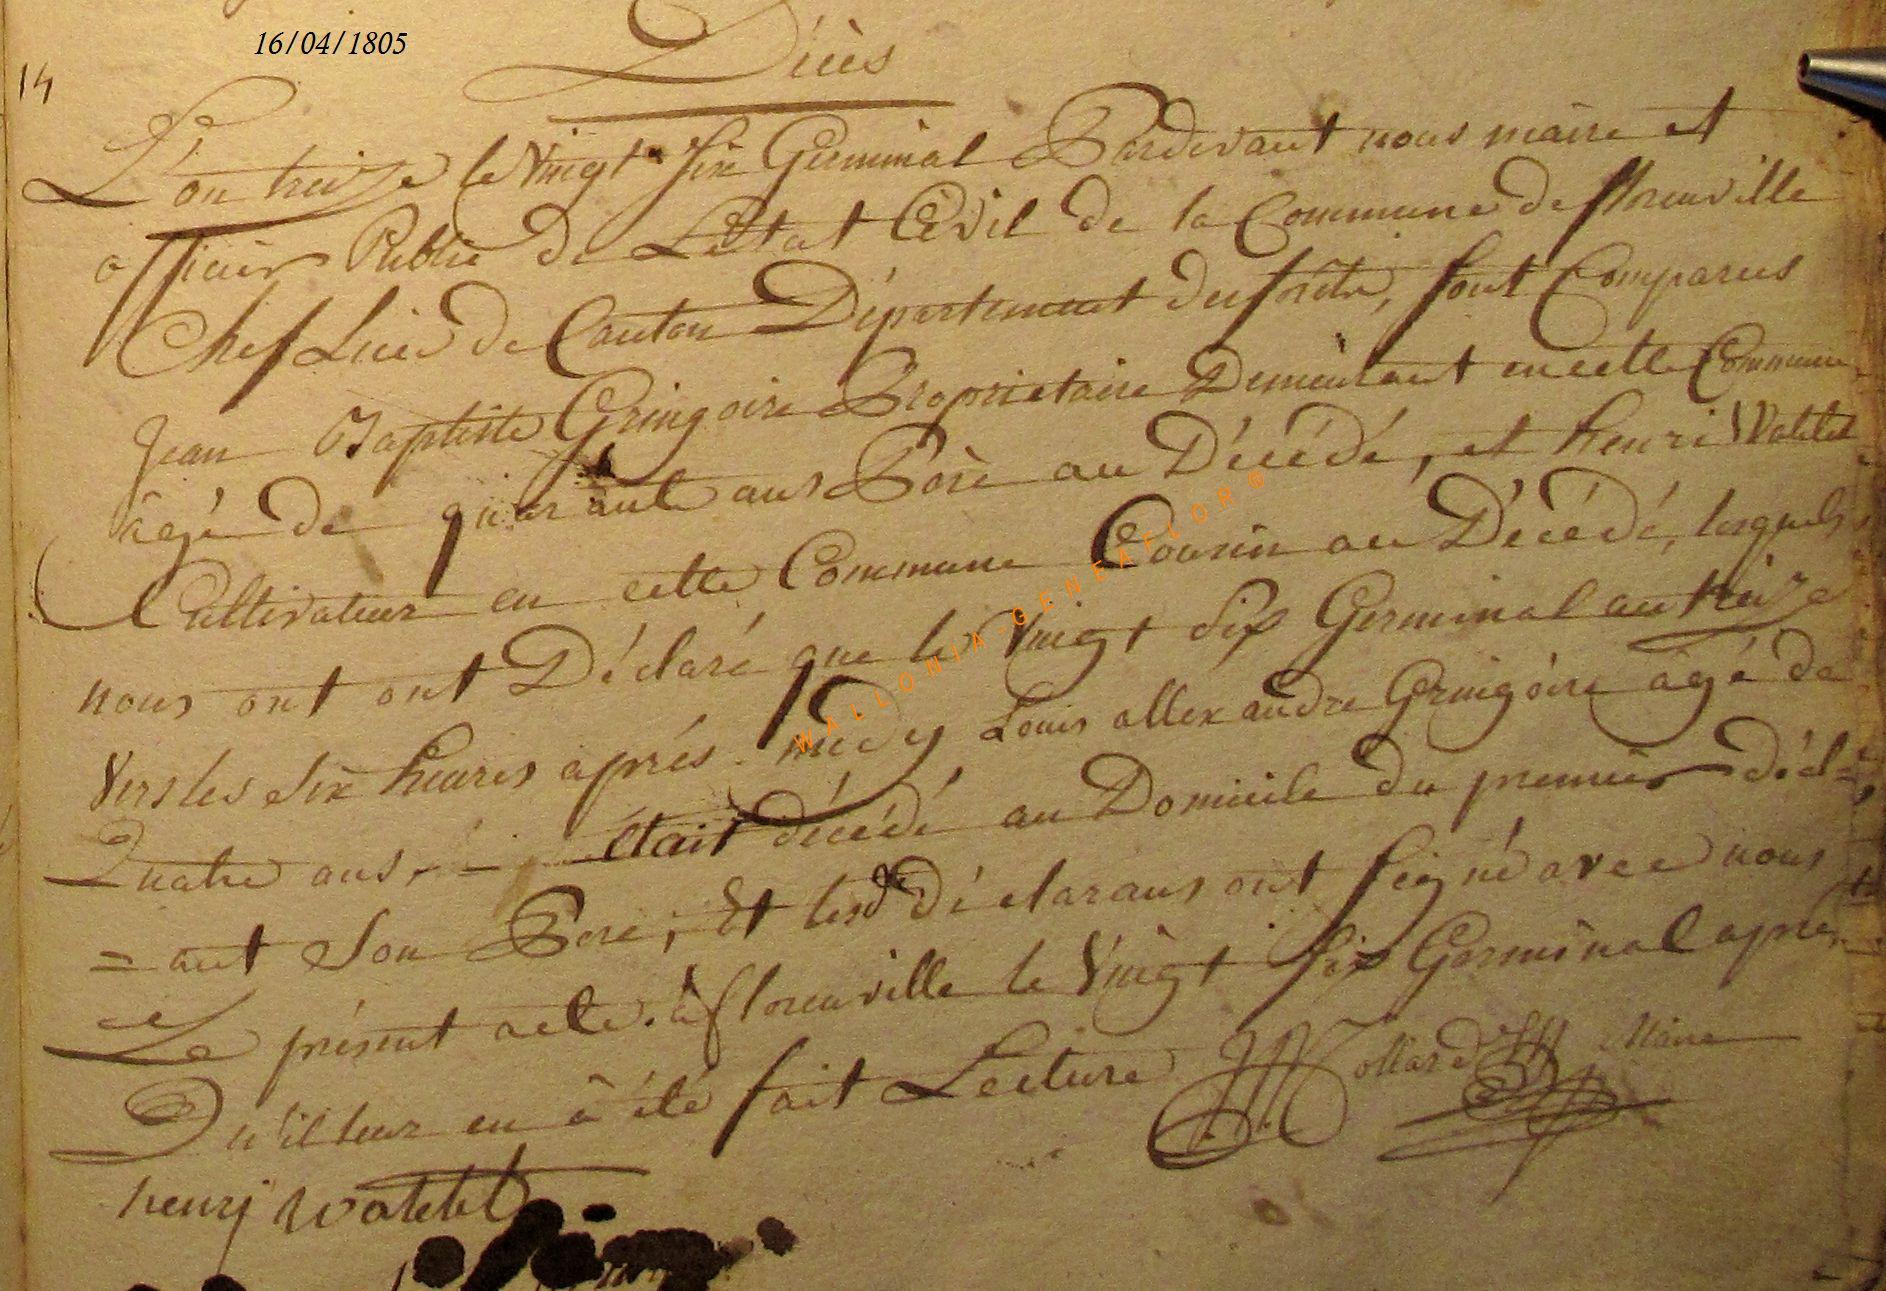 16/04/1805
14
Décès
L'an treize le Vingt Six Germinal Pardevant nous maire et
officier Public de L'Etat Civil de la Commune de florenville
Chef Lieu de Canton Département des forêts, sont Comparus
Jean Baptiste Gringoire Proprietaire Demeurant en cette Commune
âgé de quarante ans Père au Décédé, et henri Watelet
Cultivateur en cette Commune Cousin au Décédé, lesquels
nous ont ont Déclaré que le Vingt Six Germinal an treize
Vers les Six heures après midy Louis allexandre Gringoire âgé de
Quatre ans, - - était décédé au Domicile du premier décl=
=ant Son Pere, Et lesd Déclarans ont Signé avec nous
Le présent acte. à florenville le Vingt Six Germinal après
Qu'il leur en à été fait Lecture Maire
henrj Watelet
WALLONIA-GENEAFLOR ©